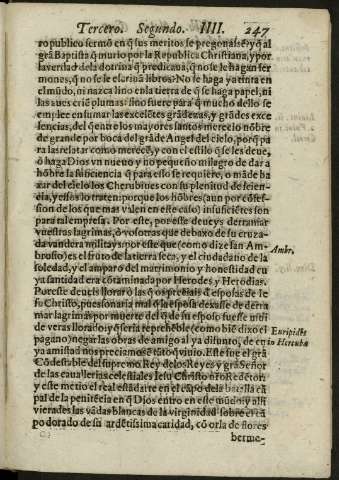 Tercero. Segundo. IIII. 247
ro publico sermõ en q̃ sus meritos se pregonassẽ? y q̃ al
grã Baptista q̃ murio por la Republica Christiana, y por
la verdad de la dotrina q̃ predicaua, q̃ no se le hagan ser
mones, q̃ no se le escriuã libros? No se haga ya tinta en
el mũdo, ni nazca lino en la tierra de q̃ se haga papel, ni
las aues criẽ plumas: sino fuere para q̃ mucho dello se
emplee en sumar las excelẽtes grãdezas, y grãdes exce
lencias, del q̃ entre los mayores santos merecio nõbre
de grande por boca del grãde Angel del cielo, porq̃ pa
ra las relatar como merecẽ, y con el estilo q̃ se les deue,
ò haga Dios vn nueuo y no pequeño milagro de dar a
hõbre la suficiencia q̃ para esso se requiere, o mãde ba
xar del cielo los Cherubines con su plenitud de scien-
cia, y essos lo traten: porque los hõbres (aun por cõfes-
sion de los que mas valen en este caso) insuficiẽtes son
para tal empresa. Por este, por este deueys derramar
vuestras lagrimas, ò vosotras que debaxo de su cruza-
da vandera militays: por este que (como dize san Am-
brosio) es el fruto de la tierra seca, y el ciudadano de la
soledad, y el amparo del matrimonio y honestidad cu
ya santidad era cõtaminada por Herodes y Herodias.
Por este deueis llorar ò las q̃ os preciais d̃ esposas de Ie
su Christo, pues onaria mal q̃ la esposa dexasse de derra
mar lagrimas por muerte del q̃ de su esposo fuesse tãto
de veras llorado: y q̃ seria reprehẽsible (como biẽ dixo el
pagano) negar las obras de amigo al ya difunto, de cu
ya amistad nos preciamos en tãto q̃ viuio. Este fue el grã
Cõdestable del supremo Rey de los Reyes y grã Señor
de las cauallerias celestiales Iesu Christo nr̃o Redẽtor:
y este metio el real estãdarte en el capo de la batalla cã
pal de la penitẽcia en q̃ Dios entro en este mũdo: y al fi
vierades las vãdas blancas de la virginidad sobre el cã
po dorado de su ardẽtissima caridad, cõ orla de flores
berme-
Ambr.
Euripides
in Hercuba